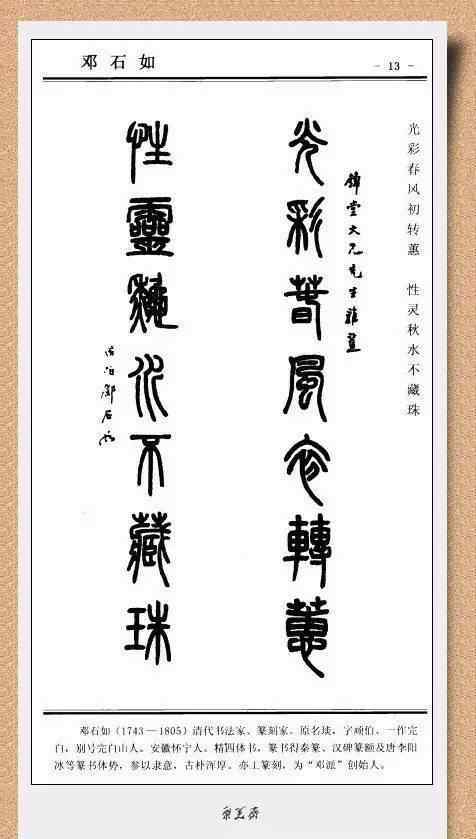 邓石如
- 13 -
光彩春风初转蕙 性灵秋水不藏珠
光彩春風初轉蕙
錦堂大兄先生雅鑒
性靈秋水不藏珠
古浣鄧石如
邓石如（1743—1805）清代书法家、篆刻家。原名琰，字顽伯，一作完
白，别号完白山人。安徽怀宁人。精四体书，篆书得秦篆、汉碑篆额及唐李阳
冰等篆书体势，参以隶意，古朴浑厚。亦工篆刻，为“邓派”创始人。